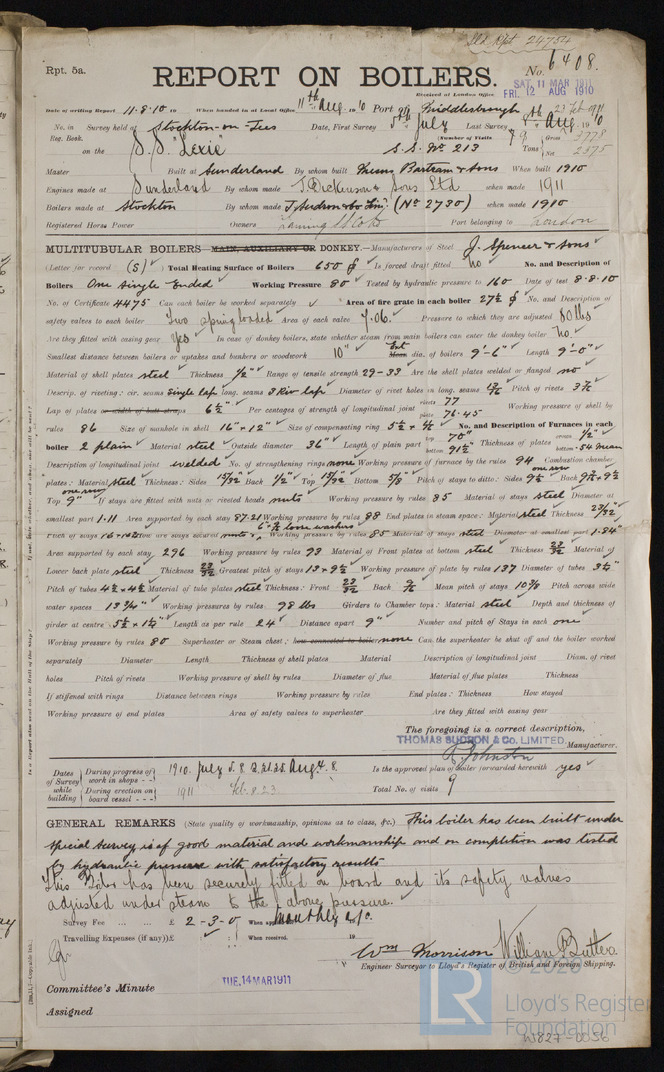 Sld Rpt 24754
Rpt. 5a.
REPORT ON BOILERS.
No. 6408.
Received at London Office
SAT. 11 MAR 1911
FRI. 12 AUG 1910
Date of writing Report 11.8.10 19 When handed in at Local Office 11th Aug. 1910 Port of Middlesbrough
No. in Survey held at Stockton-on-Tees Date, First Survey 5th July Last Survey 8th Aug. 1910
23 Feb 1911
Reg. Book. (Number of Visits 9) Gross 3778
on the S.S. "Lexie" S.S. No 213 Tons Net 2375
Master Built at Sunderland By whom built Messrs Bartram & Sons When built 1910
Engines made at Sunderland By whom made J. Dickinson & Sons Ltd when made 1911
Boilers made at Stockton By whom made T. Sudron & Co Lim. (No 2730) when made 1910
Registered Horse Power Owners Port belonging to London
MULTITUBULAR BOILERS MAIN, AUXILIARY OR DONKEY.—Manufacturers of Steel J. Spencer & Sons
(Letter for record (S)) Total Heating Surface of Boilers 650 Is forced draft fitted No No. and Description of
Boilers One Single Ended Working Pressure 80 Tested by hydraulic pressure to 160 Date of test 8.8.10
No. of Certificate 4475 Can each boiler be worked separately Area of fire grate in each boiler 27½ No. and Description of
safety valves to each boiler Two spring loaded Area of each valve 7.06 Pressure to which they are adjusted 80 lbs
Are they fitted with easing gear Yes In case of donkey boilers, state whether steam from main boilers can enter the donkey boiler No.
Smallest distance between boilers or uptakes and bunkers or woodwork 10" Ext Mean dia. of boilers 9'-6" Length 9'-0"
Material of shell plates steel Thickness ½" Range of tensile strength 29-33 Are the shell plates welded or flanged no
Descrip. of riveting: cir. seams single lap long. seams 3 Riv lap Diameter of rivet holes in long. seams 13/16 Pitch of rivets
Lap of plates or width of butt straps 6½" Per centages of strength of longitudinal joint rivets 77 plate 76.45 Working pressure of shell by
rules 86 Size of manhole in shell 16" x 12" Size of compensating ring No. and Description of Furnaces in each
boiler 2 plain Material steel Outside diameter 36" Length of plain part top 70" bottom 91½" Thickness of plates crown ½" bottom .54 mean
Description of longitudinal joint welded No. of strengthening rings none Working pressure of furnace by the rules 94 Combustion chamber
plates: Material steel Thickness: Sides 15/32 Back ½" Top 15/32 Bottom 5/8" Pitch of stays to ditto: Sides 9½ Back
Top 9" If stays are fitted with nuts or riveted heads nuts Working pressure by rules 85 Material of stays steel Diameter at
smallest part 1.11 Area supported by each stay 87.21 Working pressure by rules 88 End plates in steam space: Material steel Thickness 23/32
Pitch of stays Working pressure by rules 85 Material of stays steel Diameter at smallest part 1.84"
Area supported by each stay 296 Working pressure by rules 93 Material of Front plates at bottom steel Thickness 23/32 Material of
Lower back plate steel Thickness 23/32 Greatest pitch of stays 13 x 9½ Working pressure of plate by rules 137 Diameter of tubes 3¼"
Pitch of tubes 4½ x 4½ Material of tube plates steel Thickness: Front 23/32 Back 9/16 Mean pitch of stays 10 5/8 Pitch across wide
water spaces 13¾" Working pressures by rules 98 lbs Girders to Chamber tops: Material steel Depth and thickness of
girder at centre Length as per rule 24" Distance apart 9" Number and pitch of Stays in each one
Working pressure by rules 80 Superheater or Steam chest; how connected to boiler none Can the superheater be shut off and the boiler worked
separately Diameter Length Thickness of shell plates Material Description of longitudinal joint Diam. of rivet
holes Pitch of rivets Working pressure of shell by rules Diameter of flue Material of flue plates Thickness
If stiffened with rings Distance between rings Working pressure by rules End plates: Thickness How stayed
Working pressure of end plates Area of safety valves to superheater Are they fitted with easing gear
The foregoing is a correct description,
THOMAS SUDRON & Co. LIMITED
R. Johnston Manufacturer.
Dates of Survey while building
During progress of work in shops - - 1910. July 5. 8. Aug. 4. 8.
Is the approved plan of boiler forwarded herewith yes
During erection on board vessel - - - 1911 Feb. 8. 23.
Total No. of visits 9
GENERAL REMARKS (State quality of workmanship, opinions as to class, &c.) This boiler has been built under
special survey is of good material and workmanship and on completion was tested
by hydraulic pressure with satisfactory results
This Boiler has been securely fitted on board and its safety valves
adjusted under steam to the above pressure.
Survey Fee ... ... £ 2-3-0 When applied for, Monthly a/c.
Travelling Expenses (if any) £ When received, 19
Wm Morrison William Butler
Engineer Surveyor to Lloyd's Register of British and Foreign Shipping.
Committee's Minute
TUE. 14 MAR 1911
Assigned
© 2020
LR
Lloyd's Register
Foundation
W827-0056